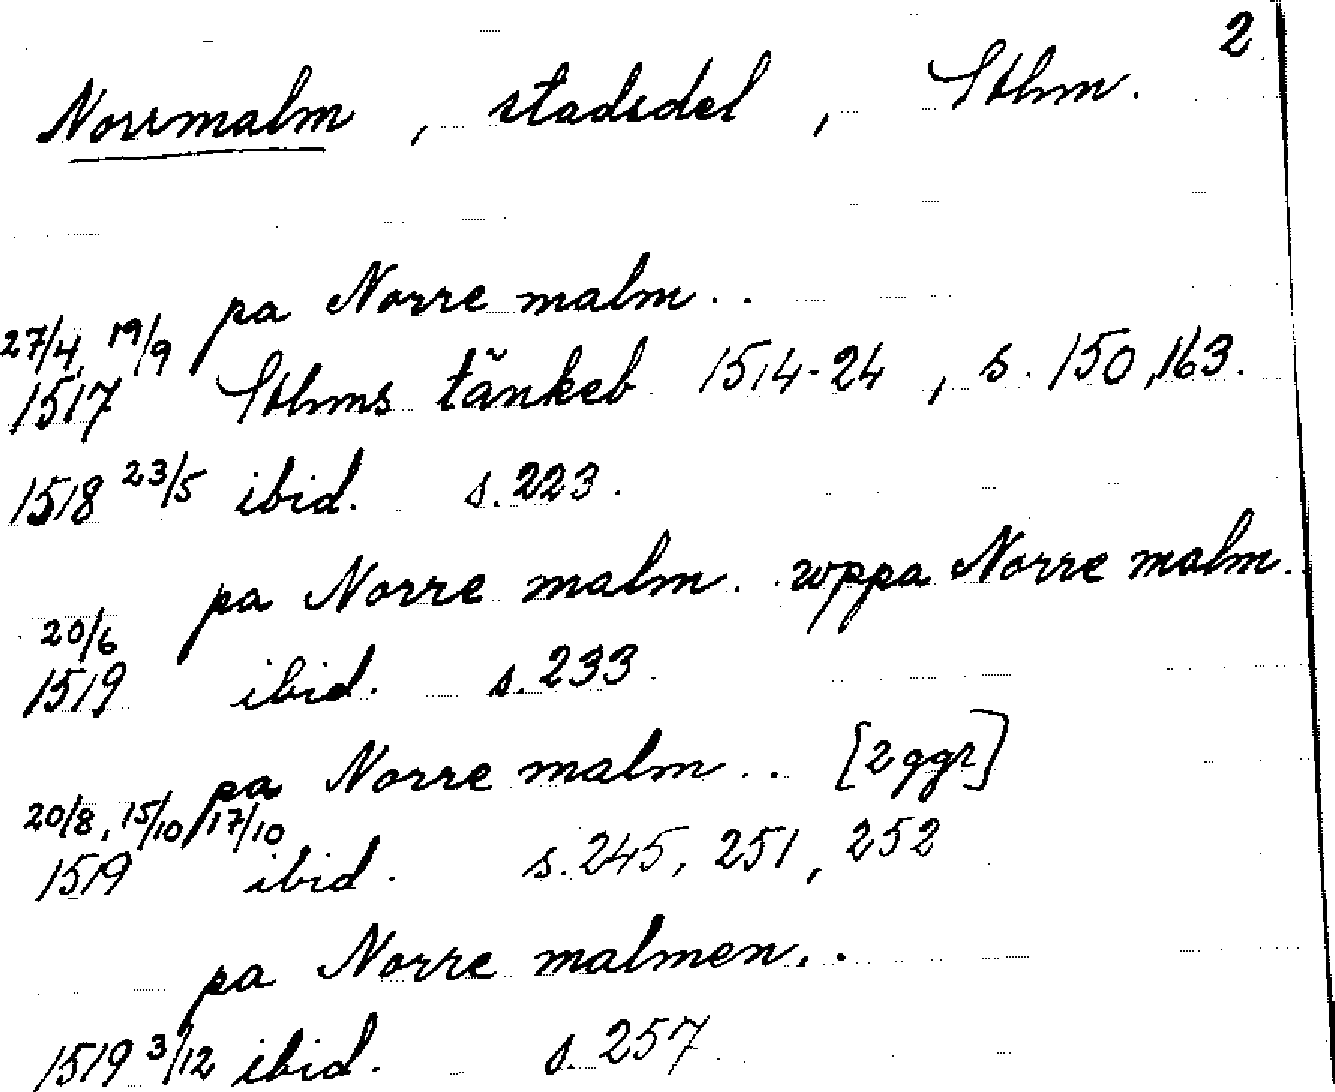 2
Norrmalm, stadsdel, Sthm.
pa Norre malm..
27/4, 19/9
1517 Sthms tänkeb 1514-24, s. 150, 163.
1518 23/5 ibid. s. 223.
pa Norre malm. . wppa Norre malm.
20/6
1519 ibid. s. 233
pa Norre malm.. [2 ggr]
20/8, 15/10, 17/10
1519 ibid. s. 245, 251, 252
pa Norre malmen..
1519 3/12 ibid. s. 257